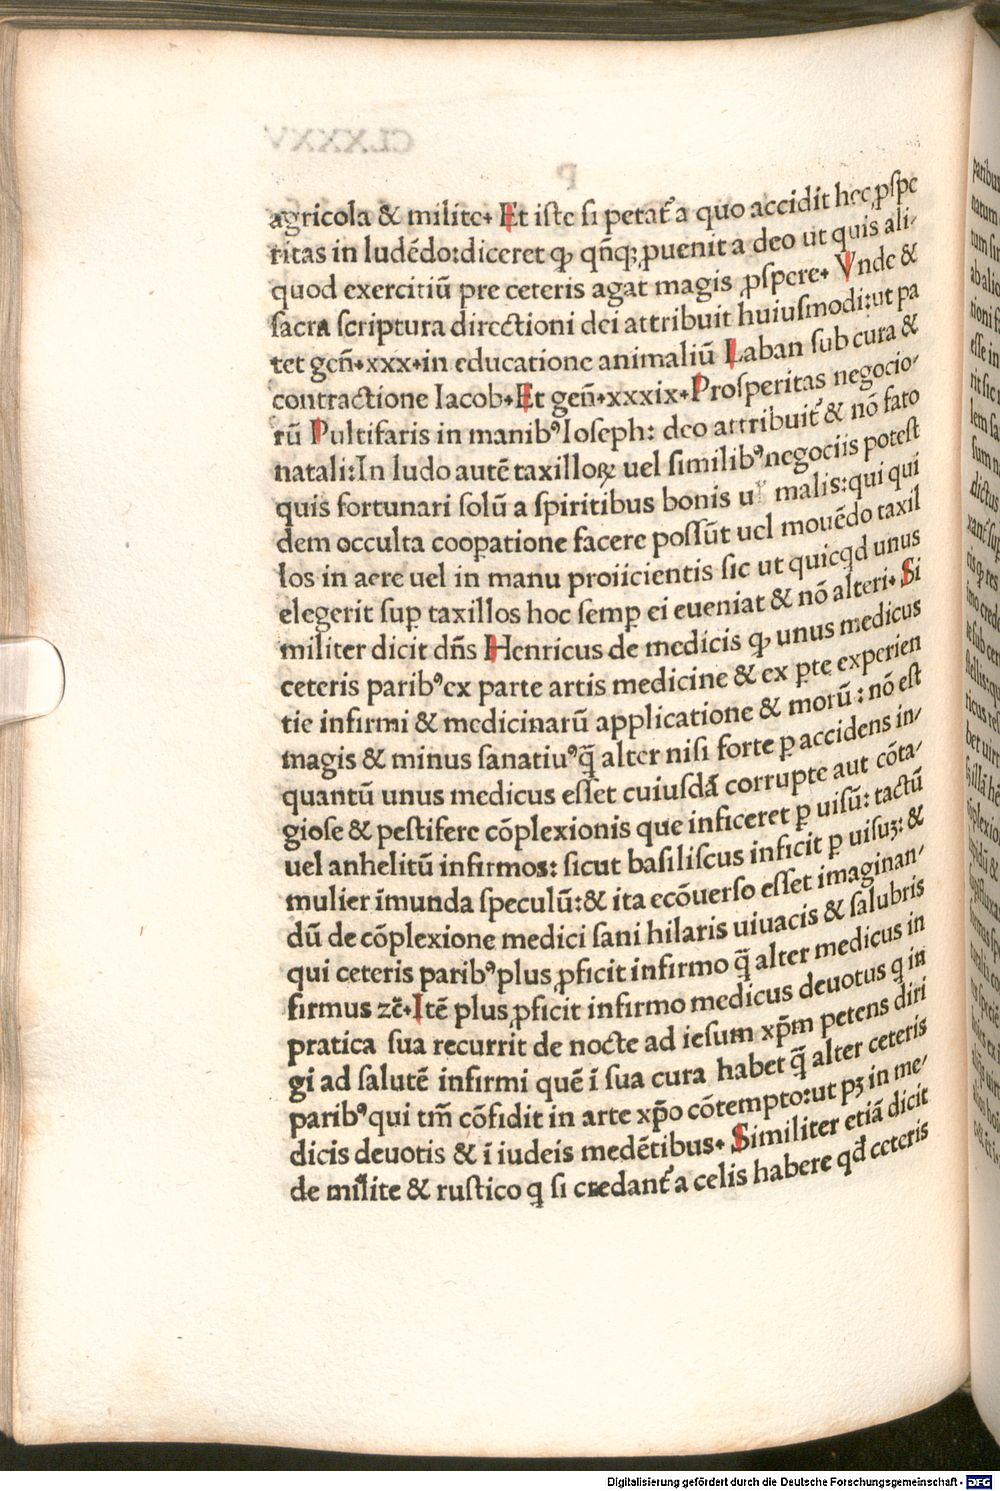 agricola & milite. Et iste si petat᷑ a quo accidit hec ꝓspe
ritas in ludēdo: diceret ꝙ qn̄qꝫ ꝓuenit a deo ut quis ali-
quod exercitiū pre ceteris agat magis ꝓspere. Vnde &
sacra scriptura directioni dei attribuit huiusmodi: ut pa
tet gen̄. xxx. in educatione animaliū Laban sub cura &
contractione Iacob. Et gen̄. xxxix. Prosperitas negocio-
rū Pultifaris in manibꝰ Ioseph: deo attribuit᷑ & nō fato
natali: In ludo autē taxilloꝝ uel similibꝰ negociis potest
quis fortunari solū a spiritibus bonis ul̓ malis: qui qui
dem occulta cooꝑatione facere possūt uel mouēdo taxil
los in aere uel in manu proiicientis sic ut quicqd unus
elegerit suꝑ taxillos hoc semꝑ ei eueniat & nō alteri. Si
militer dicit dn̄s Henricus de medicis ꝙ unus medicus
ceteris paribꝰ ex parte artis medicine & ex ꝑte experien
tie infirmi & medicinarū applicatione & morū: nō est
magis & minus sanatiuꝰ q̄ alter nisi forte ꝑ accidens in-
quantū unus medicus esset cuiusdā corrupte aut cōta-
giose & pestifere cōplexionis que inficeret ꝑ uisū: tactū
uel anhelitū infirmos: sicut basiliscus inficit ꝑ uisuꝫ: &
mulier īmunda speculū: & ita ecōuerso esset imaginan-
dū de cōplexione medici sani hilaris uiuacis & salubris
qui ceteris paribꝰ plus ꝓficit infirmo q̄ alter medicus in
firmus zc̄. Itē plus ꝓficit infirmo medicus deuotus q in
pratica sua recurrit de nocte ad iesum xp̄m petens diri
gi ad salutē infirmi quē ī sua cura habet q̄ alter ceteris
paribꝰ qui tm̄ cōfidit in arte xp̄o cōtempto: ut pꝫ in me-
dicis deuotis & ī iudeis medētibus. Similiter etiā dicit
de milite & rustico q si credant᷑ a celis habere qd̄ ceteris
Digitalisierung gefördert durch die Deutsche Forschungsgemeinschaft - DFG